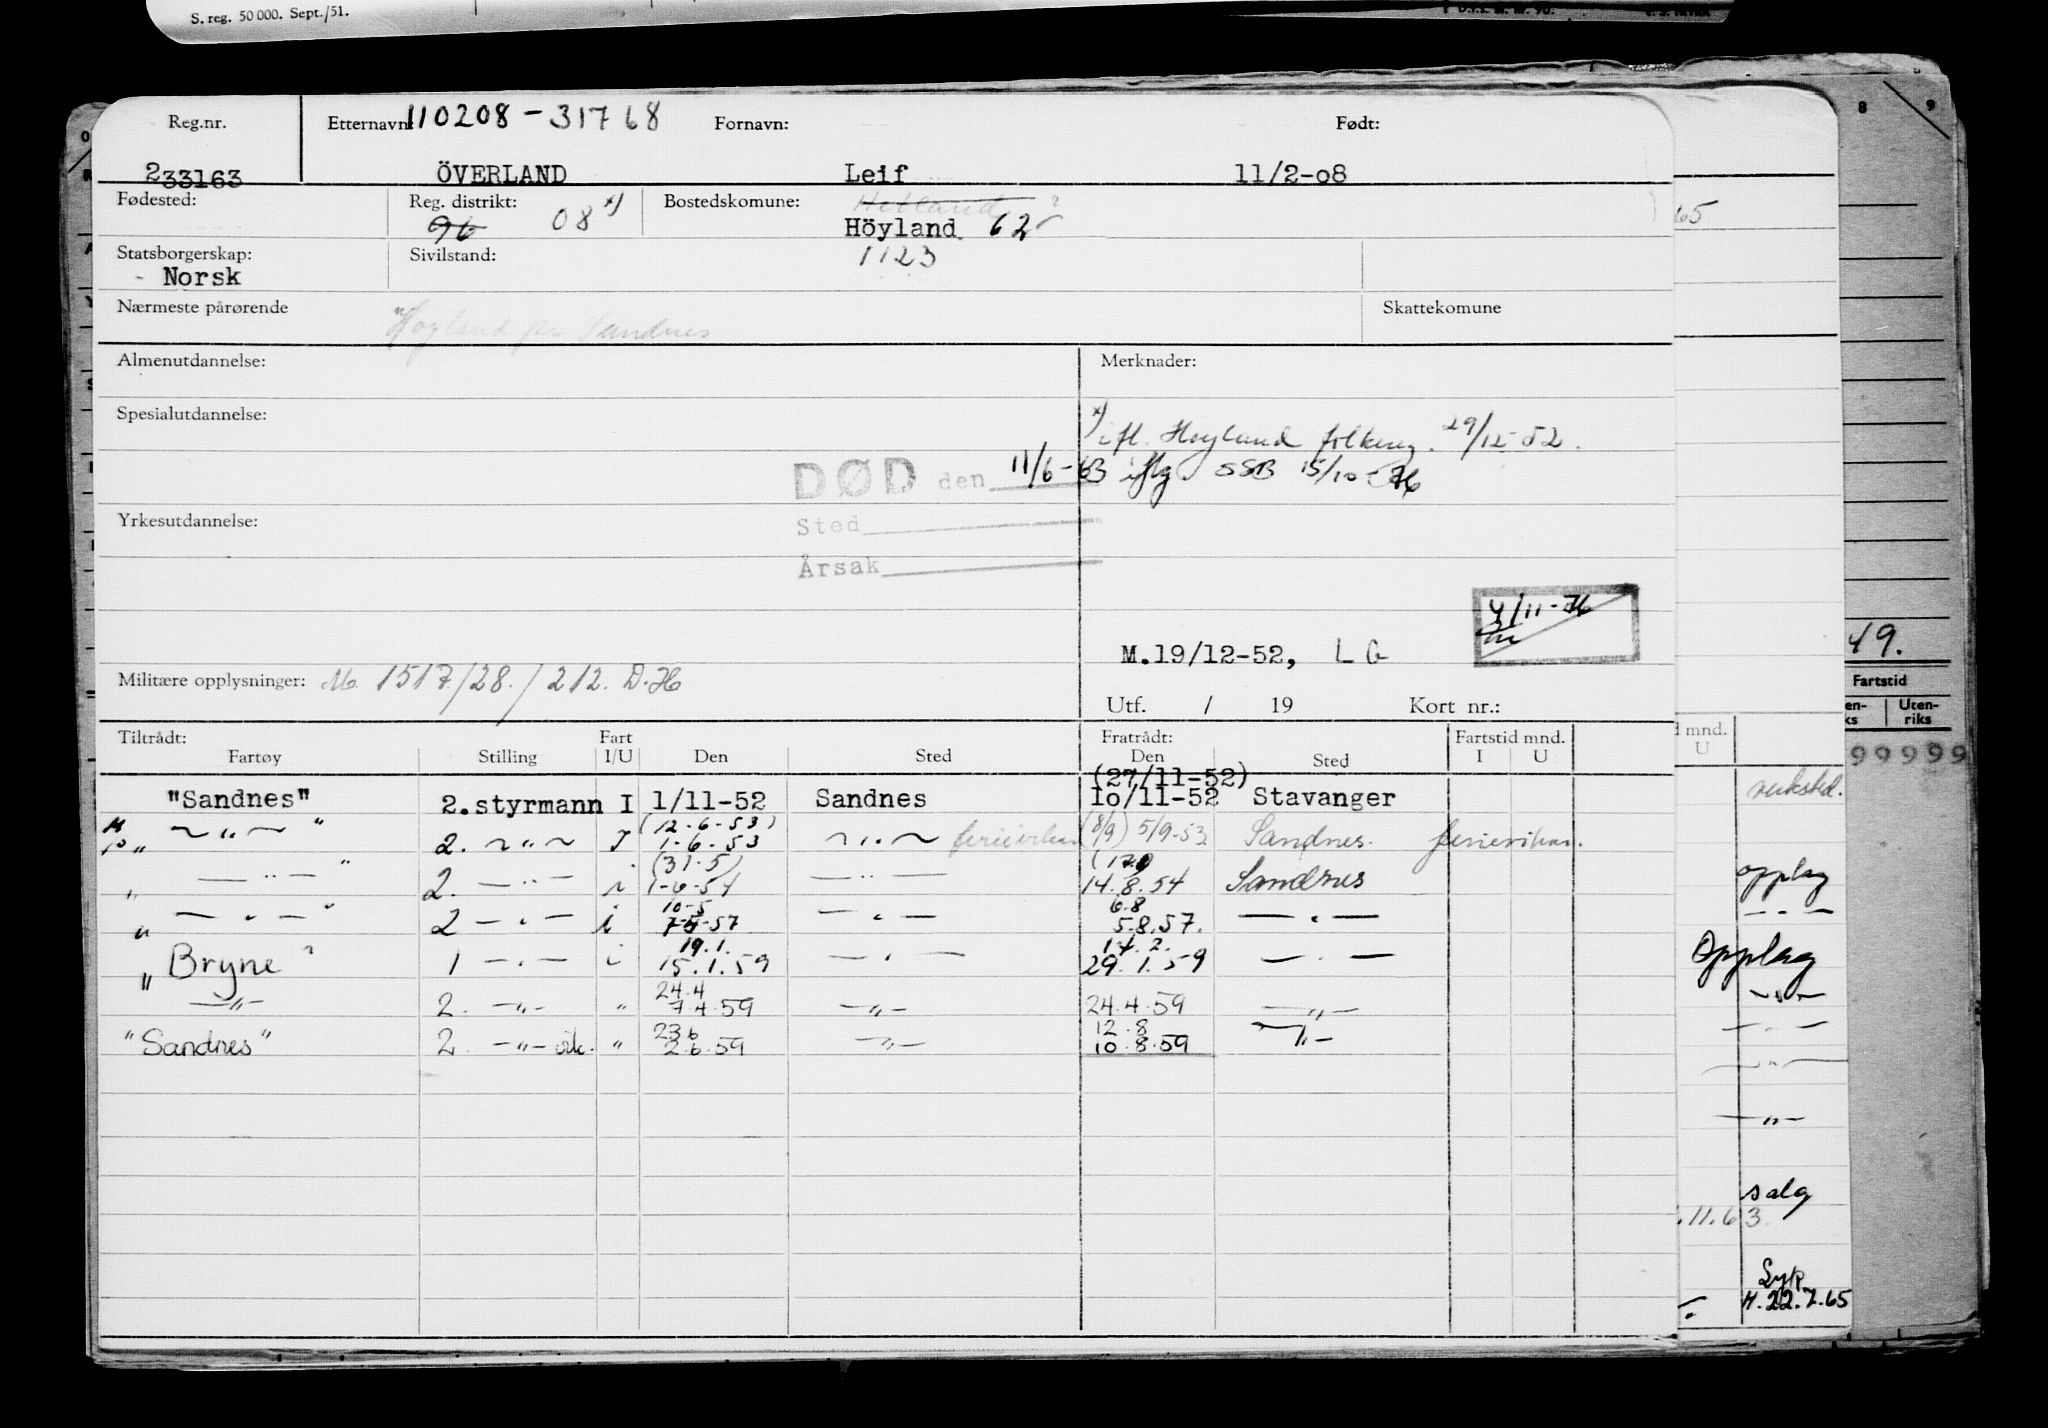 S. reg. 50 000. Sept./51.
Reg.nr.
Etternavn: 110208-31768
Fornavn:
Født:
233163
ÖVERLAND
Leif
11/2-08
Fødested:
Reg. distrikt:
96 08 x)
Bostedskomune:
Hetland
Höyland 62
Statsborgerskap:
- Norsk
Sivilstand:
1123
Nærmeste pårørende
Høyland pr Sandnes
Skattekomune
Almenutdannelse:
Merknader:
Spesialutdannelse:
x) ifl. Høyland folkereg. 29/12-52.
DØD den 11/6-63 iflg SSB 15/10-76
Yrkesutdannelse:
Sted
Årsak
4/11-76
M.19/12-52, L G
Militære opplysninger: M. 1517/28./212. D.H
Utf. / 19 Kort nr.:
Tiltrådt:
Fart
Fratrådt:
Fartstid mnd.
Fartøy Stilling I/U Den Sted Den Sted I U
(27/11-52)
"Sandnes" 2.styrmann I 1/11-52 Sandnes 10/11-52 Stavanger
(12-6-53)
„ ~ „ ~ " 2. ~ „ ~ I 1-6-53 ~ „ ~ ferievikar (8/9) 5/9-53 Sandnes. ferievikar.
(31-5)
„ — „ — " 2. — „ — i 1-6-54 — „ — 14.8.54 Sandnes
10-5 6.8
„ — „ — " 2 — „ — i 7-5-57 — „ — 5.8.57. — „ —
19.1. 14.2.
„ Bryne " 1 — „ — i 15.1.59 — „ — 29.1.59 — „ —
24.4
— „ — 2. — „ — „ 7 4.59 — „ — 24.4.59 — „ —
23 6 12.8
"Sandnes" 2. — „ — vik. „ 2.6.59 — „ — 10.8.59 — „ —
65
8 9
49.
Fartstid
Uten-
riks
mnd.
U
99999
verksted.
opplag
— „ —
Opplag
— „ —
— „ —
— „ —
— „ —
salg
.11.63
Syk
M. 22.7.65